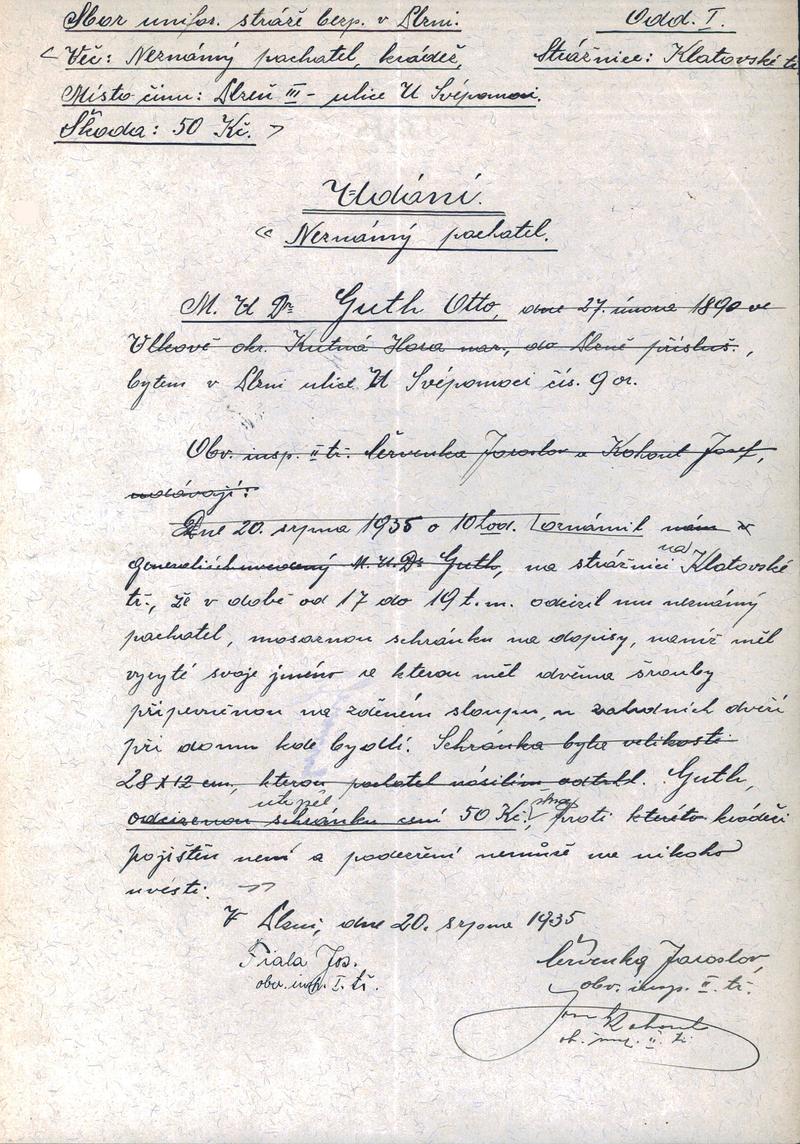 Sbor unifor. stráže bezp. v Plzni. Odd. I.
Věc: Neznámý pachatel, krádež, Strážnice: Klatovská tř
Místo činu: Plzeň III – ulice U Svépomoci.
Škoda: 50 Kč.
Udání.
Neznámý pachatel.
M. U Dr Guth Otto, dne 27. února 1890 ve
Vlkově okr. Kutná Hora nar., do Plzně přísluš.,
bytem v Plzni ulice U Svépomoci čís. 9 or.
Obv. insp. II tř. Červenka Jaroslav a Kohout Josef,
udávají:
Dne 20. srpna 1935 o 10 hod. oznámil nám v
generaliích uvedený M. U. Dr Guth, na strážnici na Klatovské
tř., že v době od 17 do 19 t. m. odcizil mu neznámý
pachatel, mosaznou schránku na dopisy, na níž měl
vyryté svoje jméno a kterou měl dvěma šrouby
připevněnou na zděném sloupu, u zahradních dveří
při domu kde bydlí. Schránka byla velikosti
28 x 12 cm, kterou pachatel násilím odtrhl. Guth,
utrpěl
odcizenou schránku cení 50 Kč, proti kteréto krádeži
pojištěn není a podezření nemůže na nikoho
uvésti.
V Plzni, dne 20. srpna 1935
Fiala Jos. Červenka Jaroslav,
obv. insp. I. tř. obv. insp. II. tř.
Jos Kohout
ob. insp. II. tř.